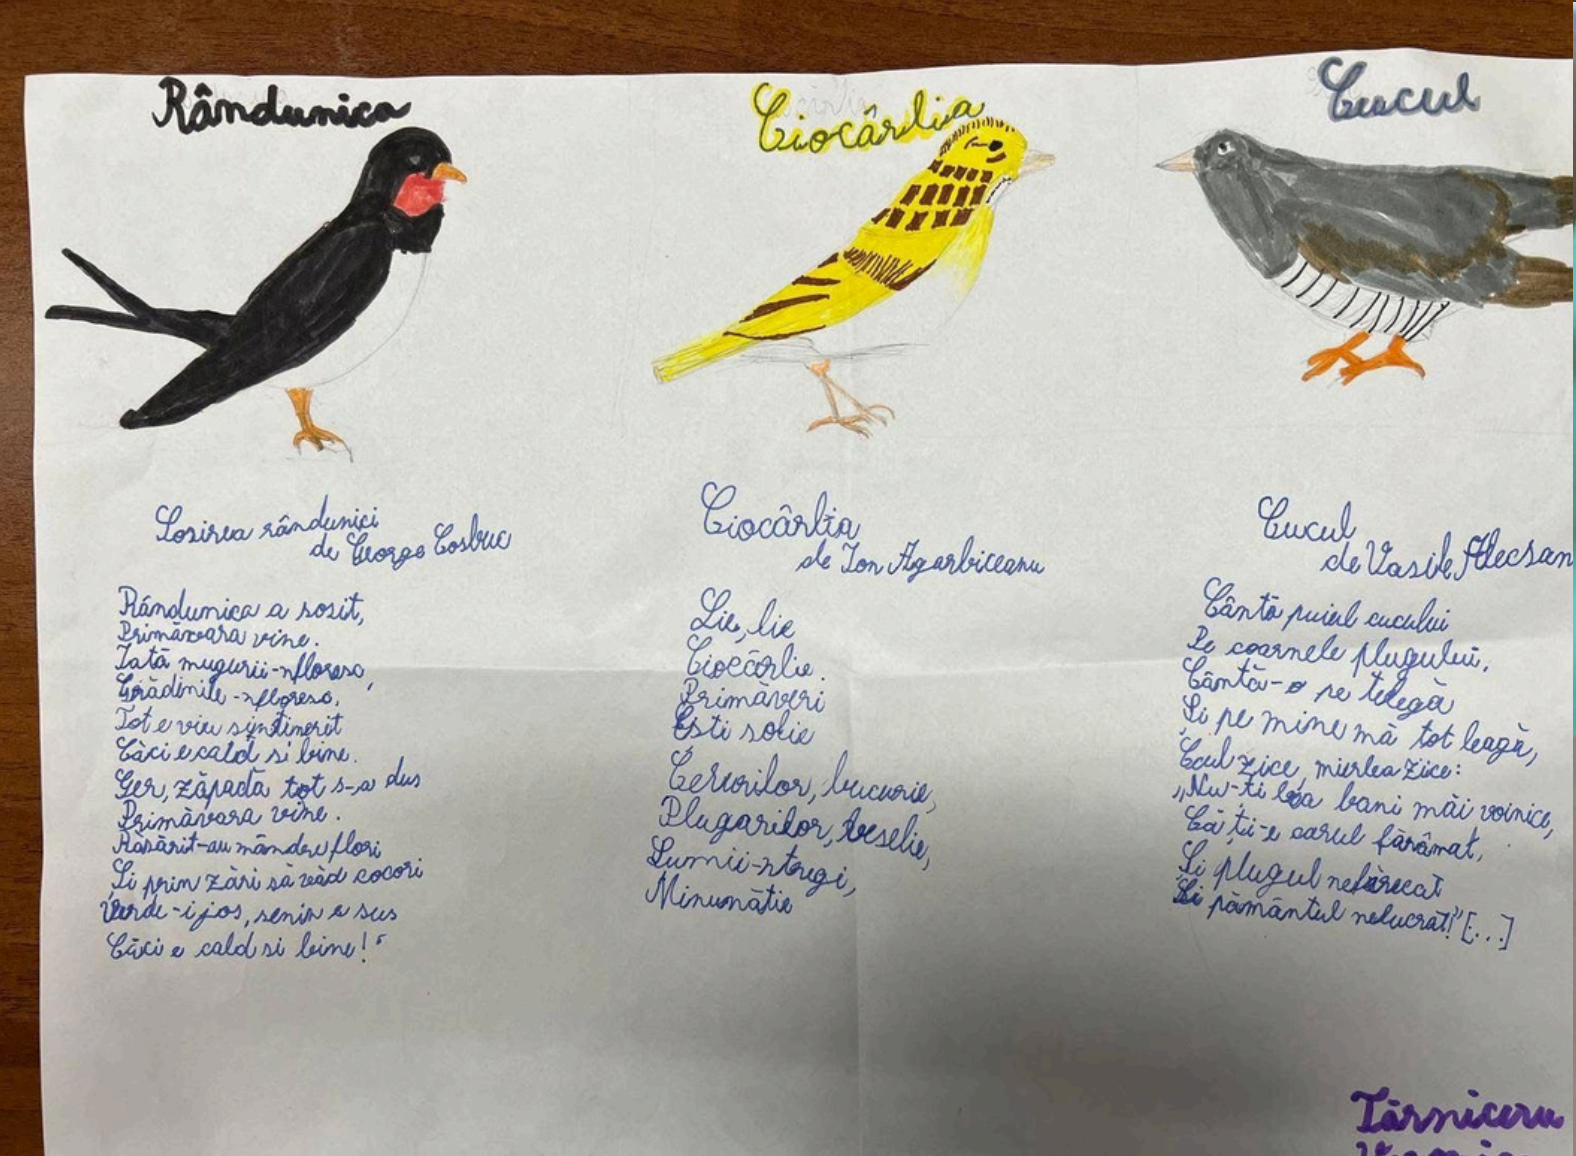 Rândunica
Sosirea rândunici
de George Cosbuc
Rândunica a sosit,
Primăvara vine.
Iată mugurii-nfloresc,
Grădinile-nfloresc,
Tot e viu
Căci e cald si bine.
Ger, zăpada tot s-a dus
Primăvara vine.
Răsărit-au mândre flori
Și prin zări să văd cocori
Verde-i jos, senin e sus
Căci e cald si bine!
Ciocârlia
Ciocârlia
de Ion Agarbiceanu
Lie, lie
Ciocârlie.
Primăveri
Esti solie
Cerurilor, bucurie,
Plugarilor, veselie,
Lumii-ntregi,
Minunăție
Cucul
Cucul
de Vasile Alecsan
Cântă puiul cucului
Pe coarnele plugului,
Cântă-o pe telegă
Și pe mine mă tot leagă,
Cucul zice, mierlea zice:
„Nu-ti bani măi voinice,
Că ți-e carul fărâmat,
Și plugul neferecat
Și pământul nelucrat!" [...]
Târniceru